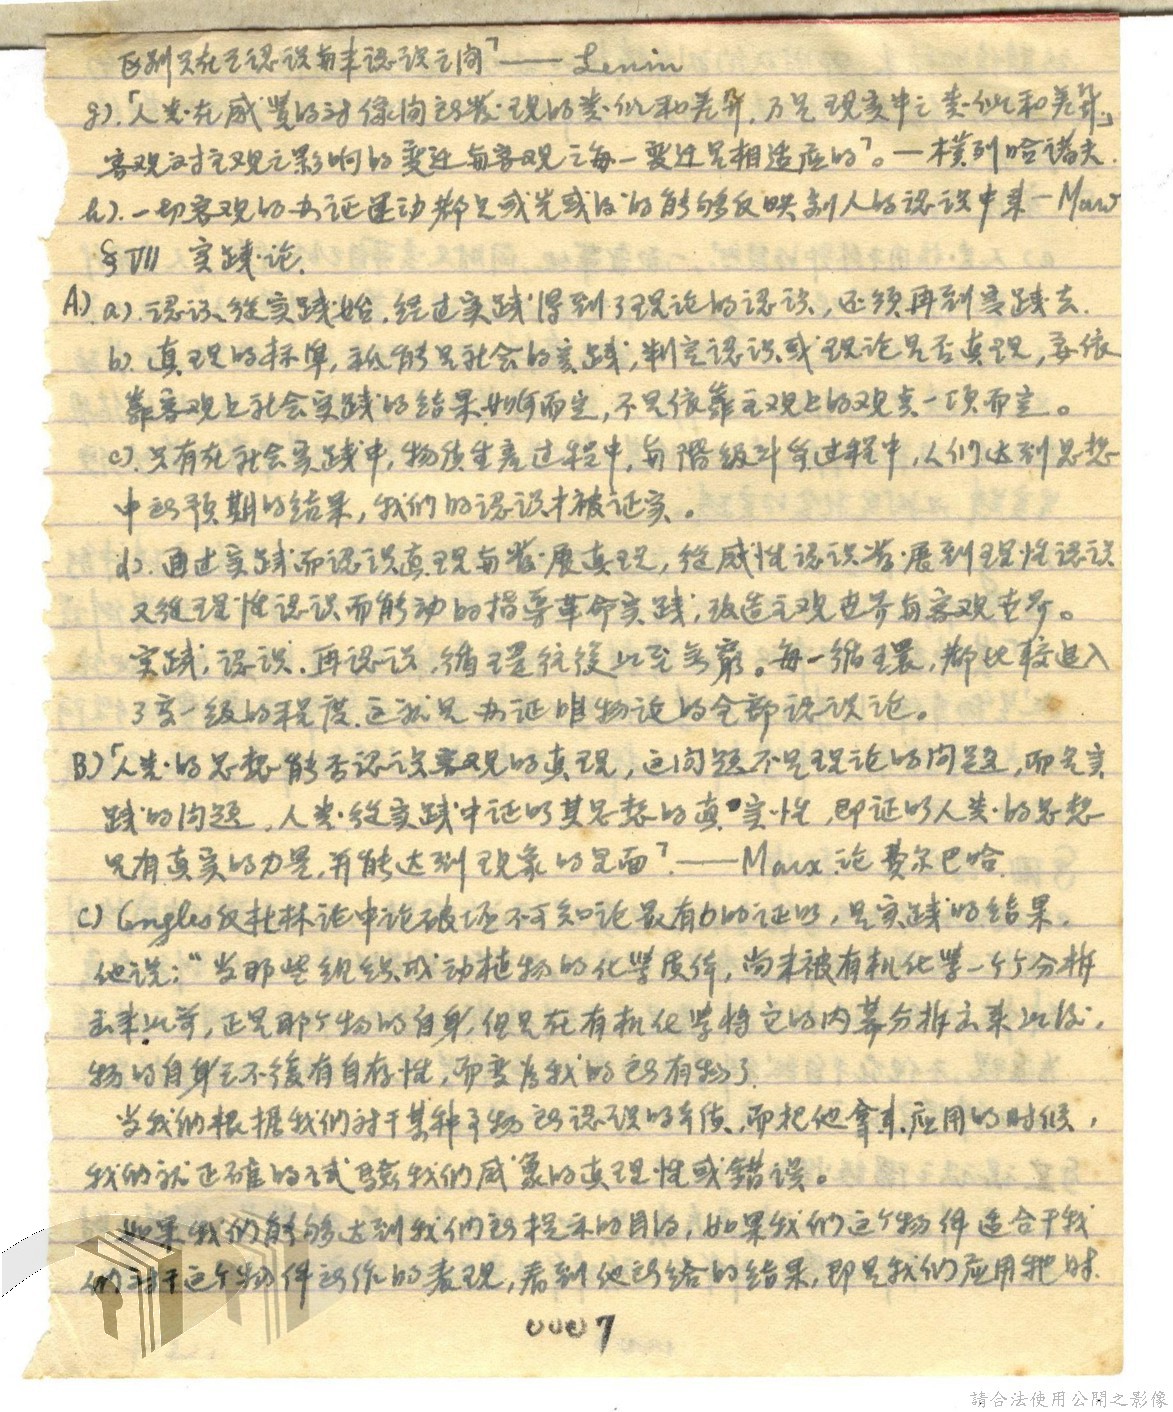 区别只在于認识与未認识之间」—— Lenin
g).「人类在感觉的对像间所发现的类似和差异,乃是现实中之类似和差异,」
客观对主观之影响的变迁与客观之每一变迁是相适应的」。—樸列哈諾夫.
h).一切客观的办证运动都是或先或后的能够反映到人的認识中来—Marx
§VII 实践论.
A).a).認识從实践始,经过实践得到了理论的認识,还须再到实践去.
b).真理的标準,祇能是社会的实践,判定認识或理论是否真理,要依
靠客观上社会实践的结果如何而定,不是依靠主观上的观点一项而言。
c).只有在社会实践中,物质生产过程中,与階级斗争过程中,人们达到思想
中所预期的结果,我们的認识才被证实。
d).通过实践而認识真理与发展真理,從感性認识发展到理性認识
又從理性認识而能动的指导革命实践,改造主观世界与客观世界。
实践,認识.再認识,循環往復以至無窮。每一循環,都比较进入
了高一级的程度.这就是办证唯物论的全部認识论。
B)「人类的思想能否認识客观的真理,这问题不是理论的问题,而是实
践的问题,人类從实践中证明其思想的真实性,即证明人类的思想
只有真实的力量,并能达到现象的里面」.——Marx.论费尔巴哈.
C) Engles反杜林论中论破坯不可知论最有力的证明,是实践的结果.
他说:“当那些组织成动植物的化学质体,尚未被有机化学一个个分拆
出来以前,正是那个物的自身,但是在有机化学将它的内幕分拆出来以後,
物的自身已不復有自存性,而变为我的所有物了.
当我们根据我们对于某种事物所認识的本质,而把他拿来应用的时候,
我们就正确的试驗我们感象的真理性或错误。
如果我们能够达到我们所提示的目的,如果我们这个物件适合于我
们对于这个物件所作的表现,看到他所给的结果,即是我们应用牠时.
0007
請合法使用公開之影像